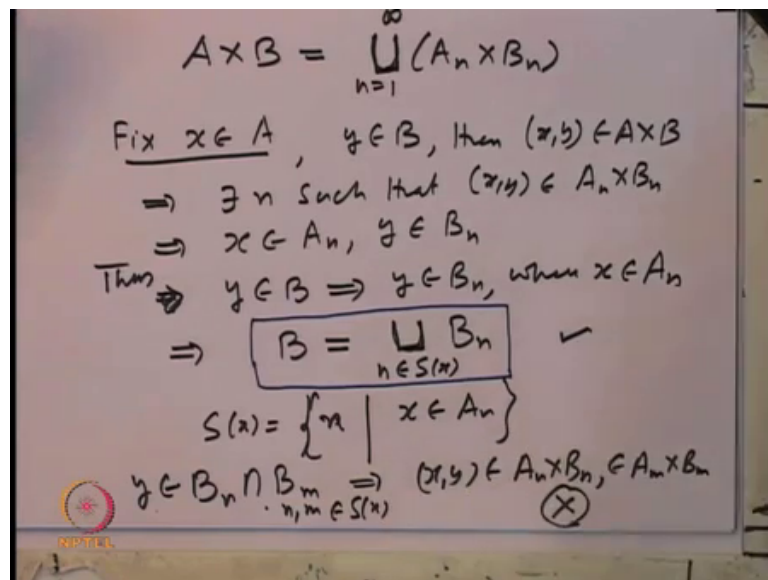 A × B = ∞⊔n=1 (An × Bn)
Fix x ∈ A , y ∈ B, then (x,y) ∈ A × B
⇒ ∃ n such that (x,y) ∈ An × Bn
⇒ x ∈ An, y ∈ Bn
Thus ⇒ y ∈ B ⇒ y ∈ Bn, when x ∈ An
⇒ B = ⊔n∈S(x) Bn ✓
S(x) = { n | x ∈ An }
y ∈ Bn ∩ Bm n,m ∈ S(x) ⇒ (x,y) ∈ An × Bn, ∈ Am × Bm
ⓧ
NPTEL